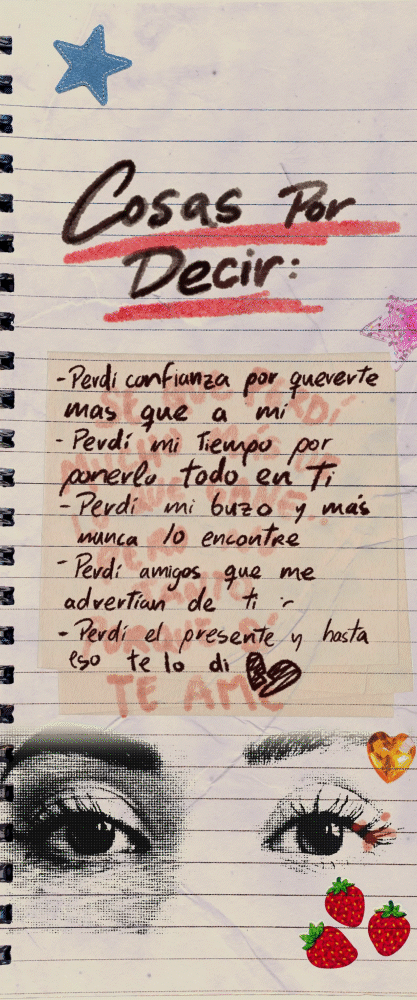 Cosas Por
Decir:
-Perdí confianza por quererte
mas que a mi
-Perdí mi Tiempo por
ponerlo todo en Ti
-Perdí mi buzo y más
nunca lo encontre
-Perdí amigos que me
advertían de ti :-
-Perdí el presente y hasta
eso te lo di
SE QUE PERDÍ
TE AMÉ